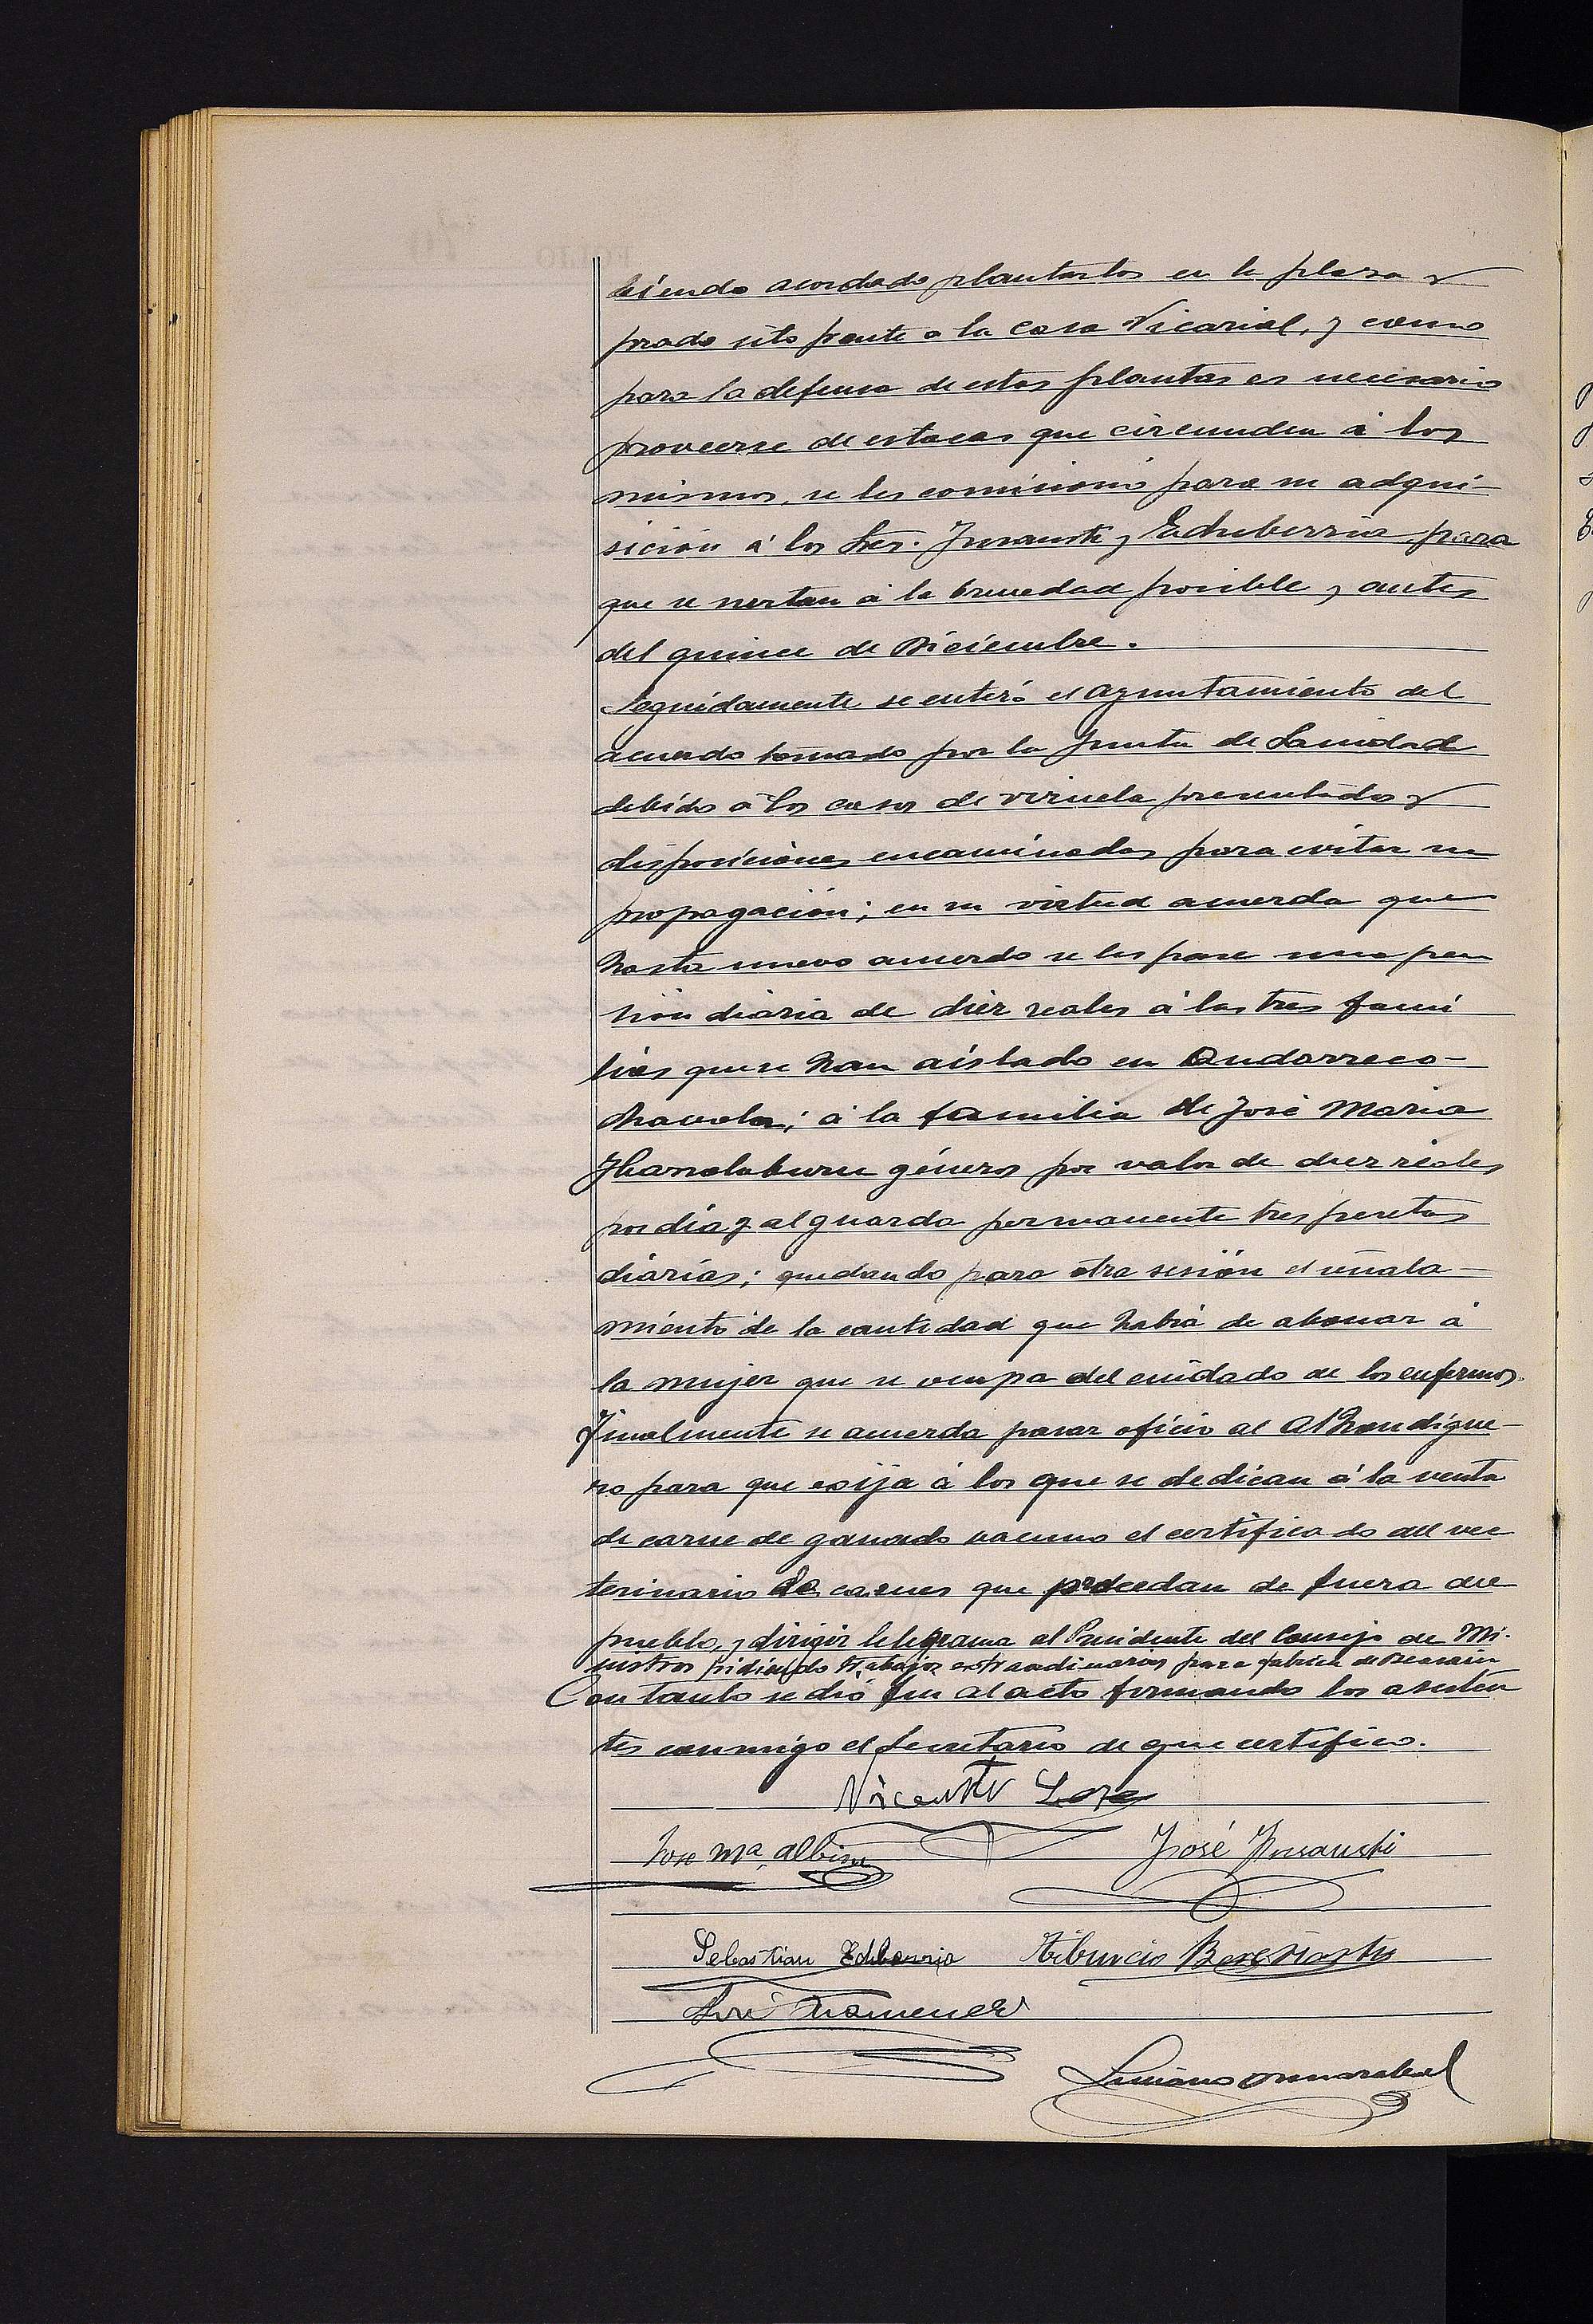 biendo acordado plantarlos en la plaza y
prado sito frente a la Casa Vicarial, y como
para la defensa de estas plantas es necesario
proveerse de estacas que circunden á los
mismos, se les comisionó para su adqui-
sición á los Sres. Insausti y Echeberria para
que se nortan á la brevedad posible y antes
del quince de Diciembre.
Seguidamente se enteró el Ayuntamiento del
acuerdo tomado por la Junta de Sanidad
debido á los casos de viruela presentados y
disposiciones encaminadas para evitar su
propagación; en su virtud acuerda que
hasta nuevo acuerdo se les pase una pen
sión diaria de diez reales á las tres fami
lias que se han aislado en
á la familia de José Maria
géneros por valor de diez reales
por dia y al guarda permanente tres pesetas
diarias; quedando para otra sesión el señala-
miento de la cantidad que habrá de abonar á
la mujer que se ocupa del cuidado de los enfermos.
Finalmente se acuerda pasar oficio al Alhondigue-
ro para que exija á los que se dedican á la venta
de carne de ganado vacuno el certificado del ve
terinario de carnes que procedan de fuera del
pueblo, y dirigir telegrama al Presidente del Consejo de Mi-
nistros pidiendo trabajos extraordinarios para fabrica de Beasain
Con tanto se dió fin al acto firmando los asisten
tes conmigo el Secretario de que certifico.
Vicente Loza
Jose Mª Albisu José Insausti
Sebastian Echeberria Tiburcio
José
Luciano